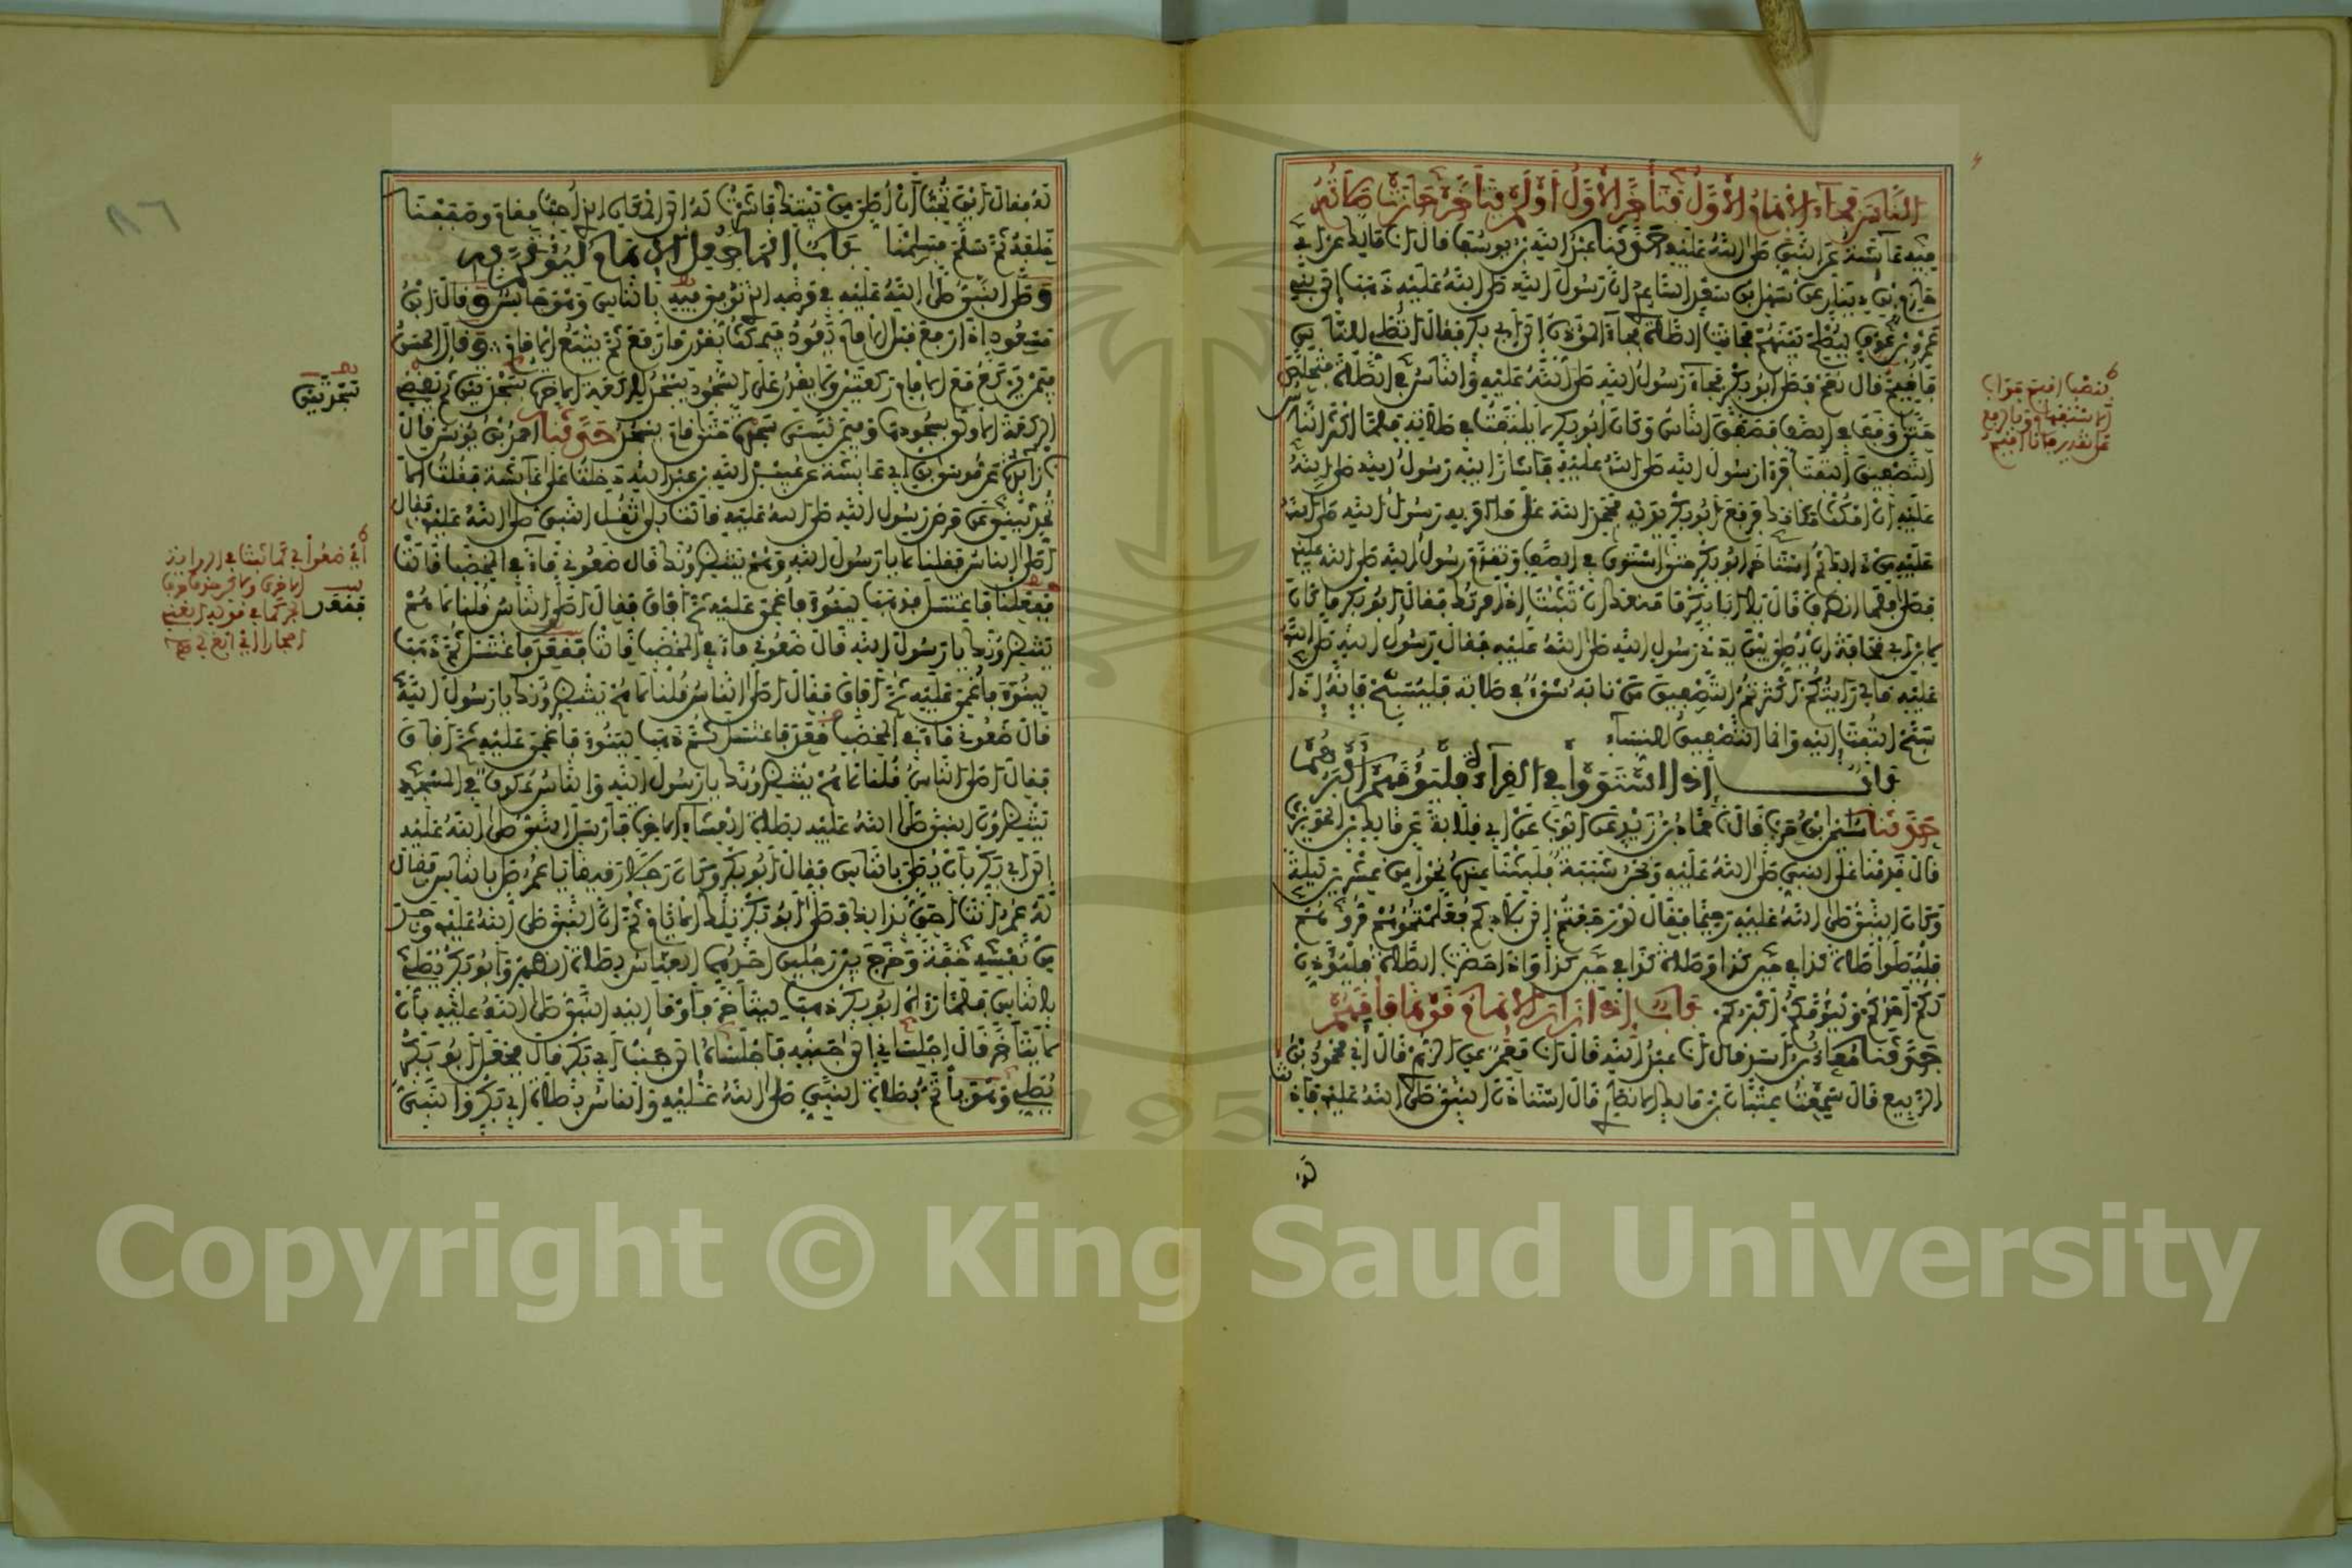 الناس فجاء الإمام الأول فتأخر الأول أو لم يتأخر جازت صلاته
فيه عائشة عن النبي صلى الله عليه حدثنا عبد الله بن يوسف قال انا مالك عن أبي
حازم بن دينار عن سهل بن سعد الساعدي ان رسول الله صلى الله عليه ذهب إلى بني
عمرو بن عوف ليصلح بينهم فحانت الصلاة فجاء المؤذن إلى أبي بكر فقال أتصلي للناس
فأقيم قال نعم فصلى أبو بكر فجاء رسول الله صلى الله عليه والناس في الصلاة فتخلص
حتى وقف في الصف فصفق الناس وكان أبو بكر لا يلتفت في صلاته فلما أكثر الناس
التصفيق التفت فرأى رسول الله صلى الله عليه فأشار إليه رسول الله صلى الله
عليه أن امكث مكانك فرفع أبو بكر يديه فحمد الله على ما أمره به رسول الله صلى الله
عليه من ذلك ثم استأخر أبو بكر حتى استوى في الصف وتقدم رسول الله صلى الله عليه
فصلى فلما انصرف قال يا أبا بكر ما منعك أن تثبت إذ أمرتك فقال أبو بكر ما كان
لابن أبي قحافة أن يصلي بين يدي رسول الله صلى الله عليه فقال رسول الله صلى الله
عليه ما لي رأيتكم أكثرتم التصفيق من نابه شيء في صلاته فليسبح فإنه إذا
سبح التفت إليه وانما التصفيق للنساء
باب إذا استووا في القراءة فليؤمهم أكبرهم
حدثنا سليمان بن حرب قال نا حماد بن زيد عن أيوب عن أبي قلابة عن مالك بن الحويرث
قال قدمنا على النبي صلى الله عليه ونحن شببة فلبثنا عنده نحوا من عشرين ليلة
وكان النبي صلى الله عليه رحيما فقال لو رجعتم إلى بلادكم فعلمتموهم مروهم
فليصلوا صلاة كذا في حين كذا وصلاة كذا في حين كذا وإذا حضرت الصلاة فليؤذن
لكم أحدكم وليؤمكم أكبركم باب إذا زار الإمام قوما فأمهم
حدثنا معاذ بن أسد قال انا عبد الله قال انا معمر عن الزهري قال أني محمود بن
الربيع قال سمعت عتبان بن مالك الأنصاري قال استأذن النبي صلى الله عليه فأذنت
له فقال أين تحب أن أصلي من بيتك فأشرت له إلى المكان الذي أحب فقام وصففنا
خلفه ثم سلم فسلمنا باب إنما جعل الإمام ليؤتم به
وصلى النبي صلى الله عليه في مرضه الذي توفي فيه بالناس وهو جالس وقال ابن
مسعود إذا رفع قبل الإمام يعود فيمكث بقدر ما رفع ثم يتبع الإمام وقال الحسن
فيمن يركع مع الإمام ركعتين ولا يقدر على السجود يسجد للركعة الآخرة سجدتين ثم يقضي
الركعة الأولى بسجودها وفيمن نسي سجدة حتى قام يسجد حدثنا أحمد بن يونس قال
نا زائدة عن موسى بن أبي عائشة عن عبيد الله بن عبد الله دخلت على عائشة فقلت ألا
تحدثيني عن مرض رسول الله صلى الله عليه قالت بلى ثقل النبي صلى الله عليه فقال
أصلى الناس فقلنا لا يا رسول الله وهم ينتظرونك قال ضعوني ماء في المخضب قالت
ففعلنا فاغتسل فذهب لينوء فأغمي عليه ثم أفاق فقال أصلى الناس قلنا لا هم
ينتظرونك يا رسول الله قال ضعوني ماء في المخضب قالت فقعد فاغتسل ثم ذهب
لينوء فأغمي عليه ثم أفاق فقال أصلى الناس قلنا لا هم ينتظرونك يا رسول الله
قال ضعوني ماء في المخضب فقعد فاغتسل ثم ذهب لينوء فأغمي عليه ثم أفاق
فقال أصلى الناس قلنا لا هم ينتظرونك يا رسول الله والناس عكوف في المسجد
ينتظرون النبي صلى الله عليه لصلاة العشاء الآخرة فأرسل النبي صلى الله عليه
إلى أبي بكر بأن يصلي بالناس فقال أبو بكر وكان رجلا رقيقا يا عمر صل بالناس فقال
له عمر أنت أحق بذلك فصلى أبو بكر تلك الأيام ثم إن النبي صلى الله عليه وجد
من نفسه خفة وخرج بين رجلين أحدهما العباس لصلاة الظهر وأبو بكر يصلي
بالناس فلما رآه أبو بكر ذهب ليتأخر فأومأ إليه النبي صلى الله عليه بأن
لا يتأخر قال اجلساني إلى جنبه فأجلساه إلى جنب أبي بكر قال فجعل أبو بكر
يصلي وهو يأتم بصلاة النبي صلى الله عليه والناس بصلاة أبي بكر والنبي
سجدتين
فقعد
Copyright © King Saud University
1957